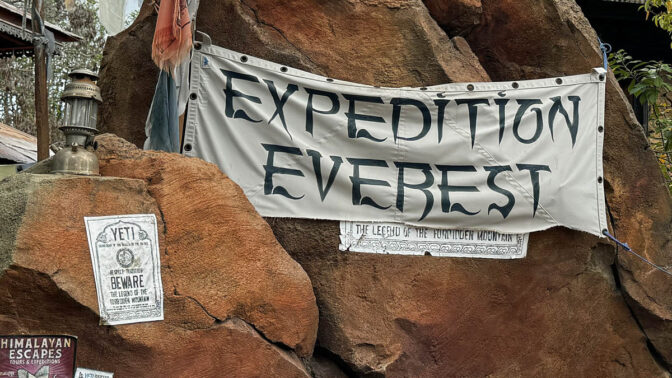 EXPEDITION
EVEREST
THE LEGEND OF THE FORBIDDEN MOUNTAIN
YETI
RESPECT TRADITION
BEWARE
THE LEGEND OF THE
FORBIDDEN MOUNTAIN
HIMALAYAN
ESCAPES
TOURS & EXPEDITIONS